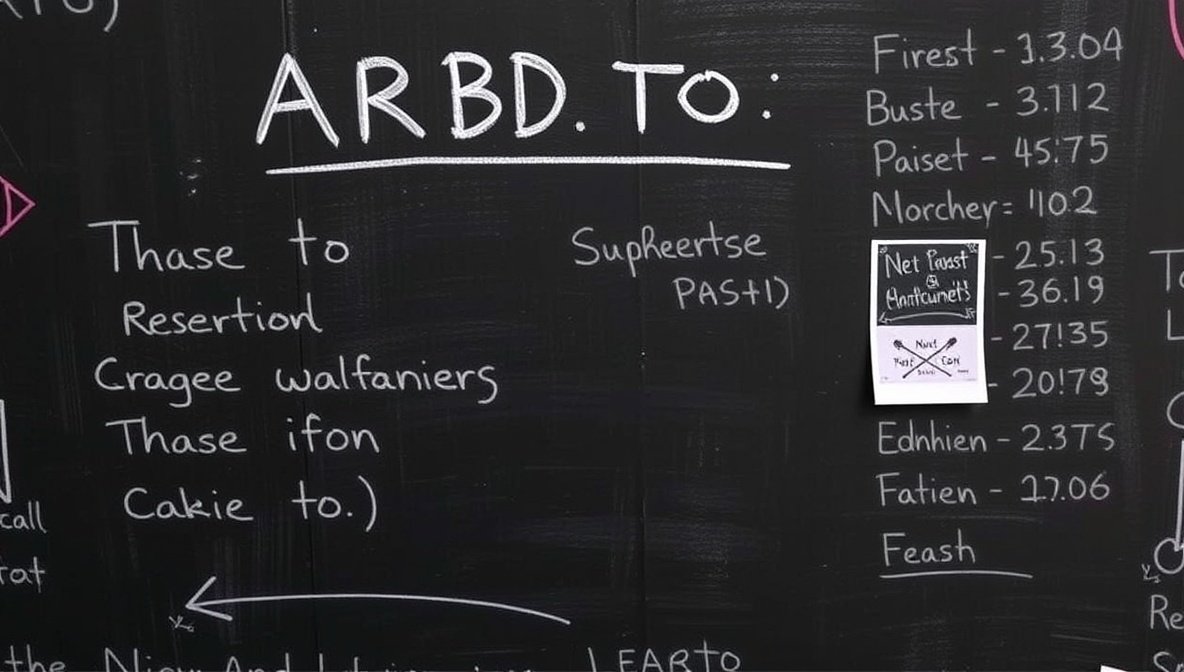 ARBD. TO:
Thase to
Resertiod
Cragee walfaniers
Thase ifon
Cakie to.)
Supheertse
PAST1)
Firest - 1.3.04
Buste - 3.112
Paiset - 45:75
Morcher = 110.2
- 25.13
- 36.19
- 27!35
- 20!78
Net
Ednhien - 2.3TS
Fatien - 17.06
Feash
call
rat
the
LEARTO
To
L
Re